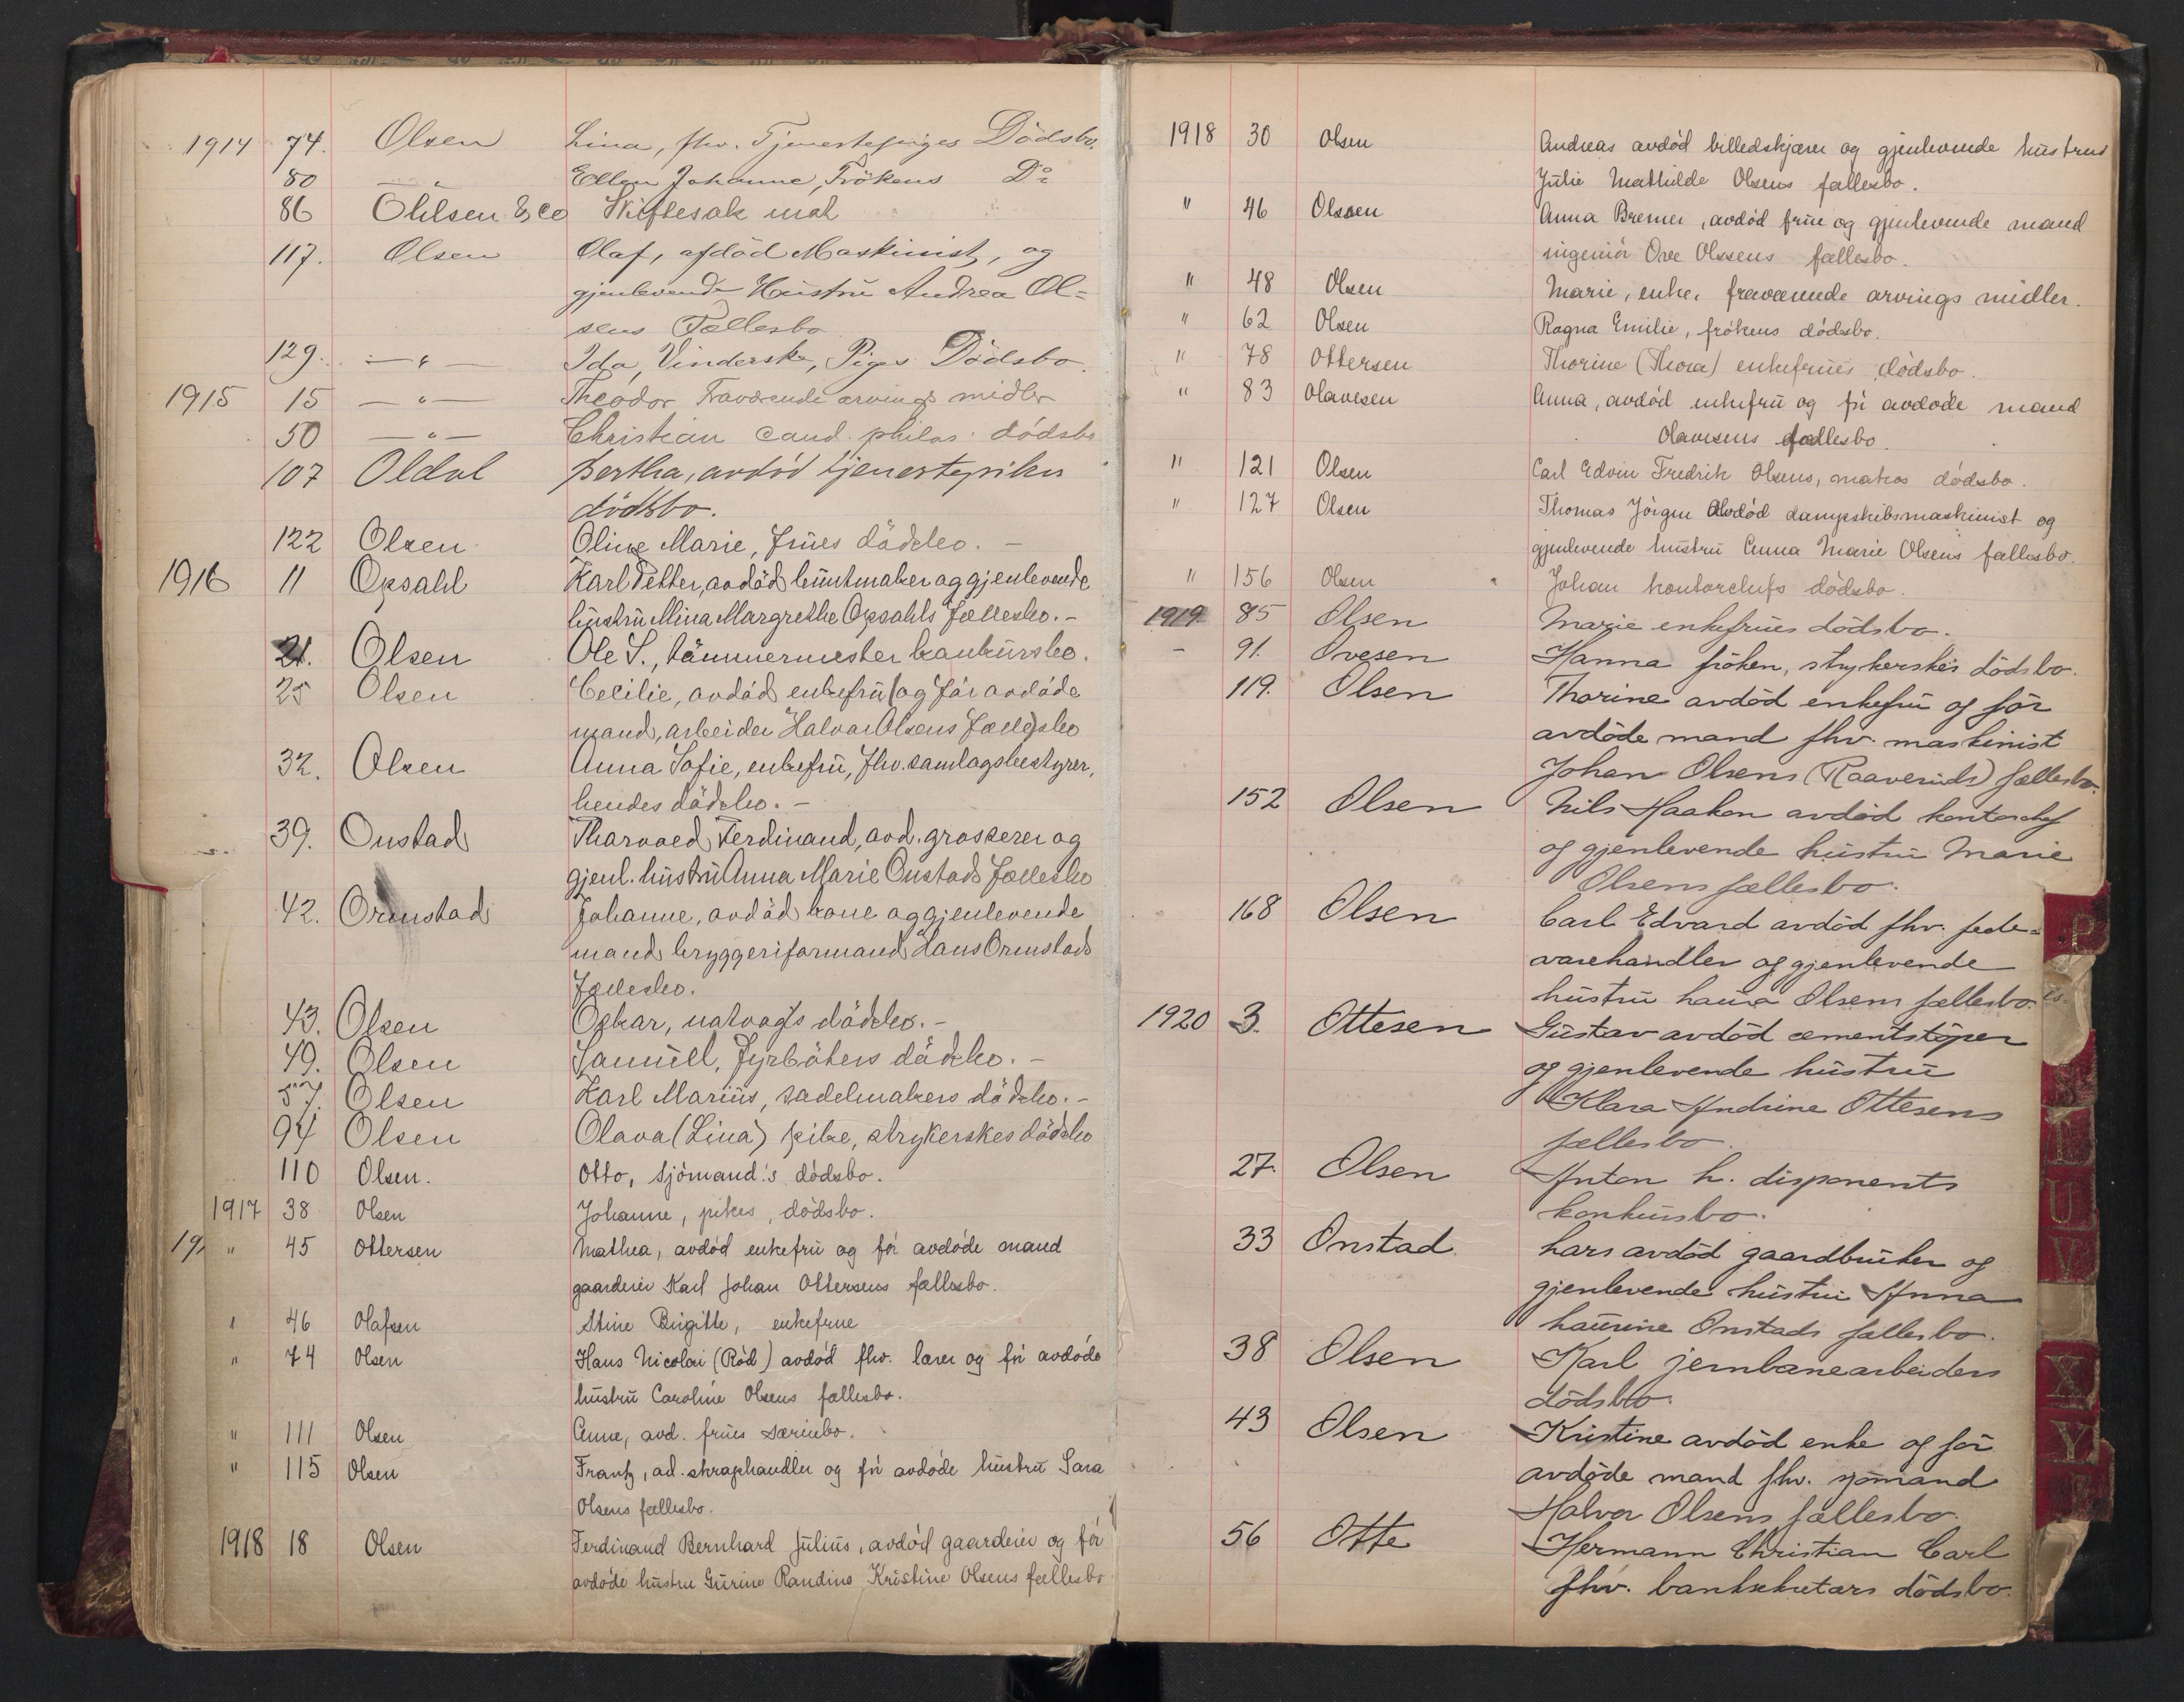 1914 74. Olsen Lina, fhv. Tjenestepiges Dödsbo.
80 — " — Ellen Johanne, Frökens Do
86 Ohlsen & Co Skiftesak mot
117. Olsen Olaf, afdöd Maskinist, og
gjenlevende Hustru Andrea Ol-
sens Fællesbo
129. — " — Ida, Vinderske, Piges Dödsbo.
1915 15 — " — Theodor Fraværende arvings midler
50 — " — Christian cand. philos. dödsbo
107 Oldal Bertha, avdöd tjenestepikes
dödsbo.
122 Olsen Oline Marie, frues dödsbo. —
1916 11 Opsahl Karl Petter, avdöd buntmaker og gjenlevende
hustru Mina Margrethe Opsahls fællesbo. -
21. Olsen Ole S., tömmermester konkursbo.
25 Olsen Cecilie, avdöd enkefru (og för avdöde
mand, arbeider Halvor Olsens fællesbo
32. Olsen Anna Sofie, enkefru, fhv. samlagsbestyrer,
hendes dödsbo. -
39. Onstad Thorvald Ferdinand, avd. grosserer og
gjenl. hustru Anna Marie Onstads fællesbo
42. Ormstad Johanne, avdöd kone og gjenlevende
mand bryggeriformand Hans Ormstads
fællesbo.
43. Olsen Oskar, natvagts dödsbo. -
49. Olsen Samuel, fyrböters dödsbo. -
57. Olsen Karl Marius, sadelmakers dödsbo. -
94 Olsen Olava (Lina) pike, strykerskes dödsbo
110 Olsen. Otto, sjömand's dödsbo.
1917 38 Olsen Johanne, pikes, dödsbo.
19 " 45 Ottersen Mathea, avdöd enkefru og för avdöde mand
gaardeier Karl Johan Ottersens fællesbo.
" 46 Olafsen Stine Birgitte, enkefrue
" 74 Olsen Hans Nicolai (Röd) avdöd fhv. lærer og för avdöde
hustru Caroline Olsens fællesbo.
" 111 Olsen Anne, avd. frues særiebo.
" 115 Olsen Frantz, ad. skraphandler og för avdöde hustru Sara
Olsens fællesbo.
1918 18 Olsen Ferdinand Bernhard Julius, avdöd gaardeier og för
avdöde hustru Gurine Randine Kristine Olsens fællesbo
1918 30 Olsen Andreas avdöd billedskjærer og gjenlevende hustrus
Julie Mathilde Olsens fællesbo.
" 46 Olssen Anna Bremer, avdöd frue og gjenlevende mand
ingeniör Ove Olssens fællesbo.
" 48 Olsen Marie, enke, fraværende arvings midler.
" 62 Olsen Ragna Emilie, frökens dödsbo.
" 78 Ottersen Thorine (Thora) enkefrues dödsbo.
" 83 Olavesen Anna, avdöd enkefru og för avdöde mand
Olavesens fællesbo.
" 121 Olsen Carl Edvin Fredrik Olsens, matros dödsbo.
" 127 Olsen Thomas Jörgen Avdöd dampskibsmaskinist og
gjenlevende hustru Anna Marie Olsens fællesbo.
" 156 Olsen Johan kontorchefs dödsbo.
1919 85 Olsen Marie enkefrues dödsbo.
- 91. Ovesen Hanna fröken, strykerskes dödsbo.
119. Olsen Thorine avdöd enkefru og för
avdöde mand fhv. maskinist
Johan Olsens (Raaveruds) fællesbo.
152 Olsen Nils Haakon avdöd kontorchef
og gjenlevende hustru Marie
Olsens fællesbo.
168 Olsen Carl Edvard avdöd fhv. fede-
varehandler og gjenlevende
hustru Laura Olsens fællesbo.
1920 3. Ottesen Gustav avdöd cementstöper
og gjenlevende hustru
Klara Andrine Ottesens
fællesbo.
27. Olsen Anton L. disponents
konkursbo.
33 Onstad Lars avdöd gaardbruker og
gjenlevende hustru Anna
Laurine Onstads fællesbo.
38 Olsen Karl jernbanearbeiders
dödsbo.
43 Olsen Kristine avdöd enke og för
avdöde mand fhv. sjömand
Halvor Olsens fællesbo.
56 Otte Hermann Christian Carl
fhv. banksekretærs dödsbo.
P
S
T
U
V
X
Y